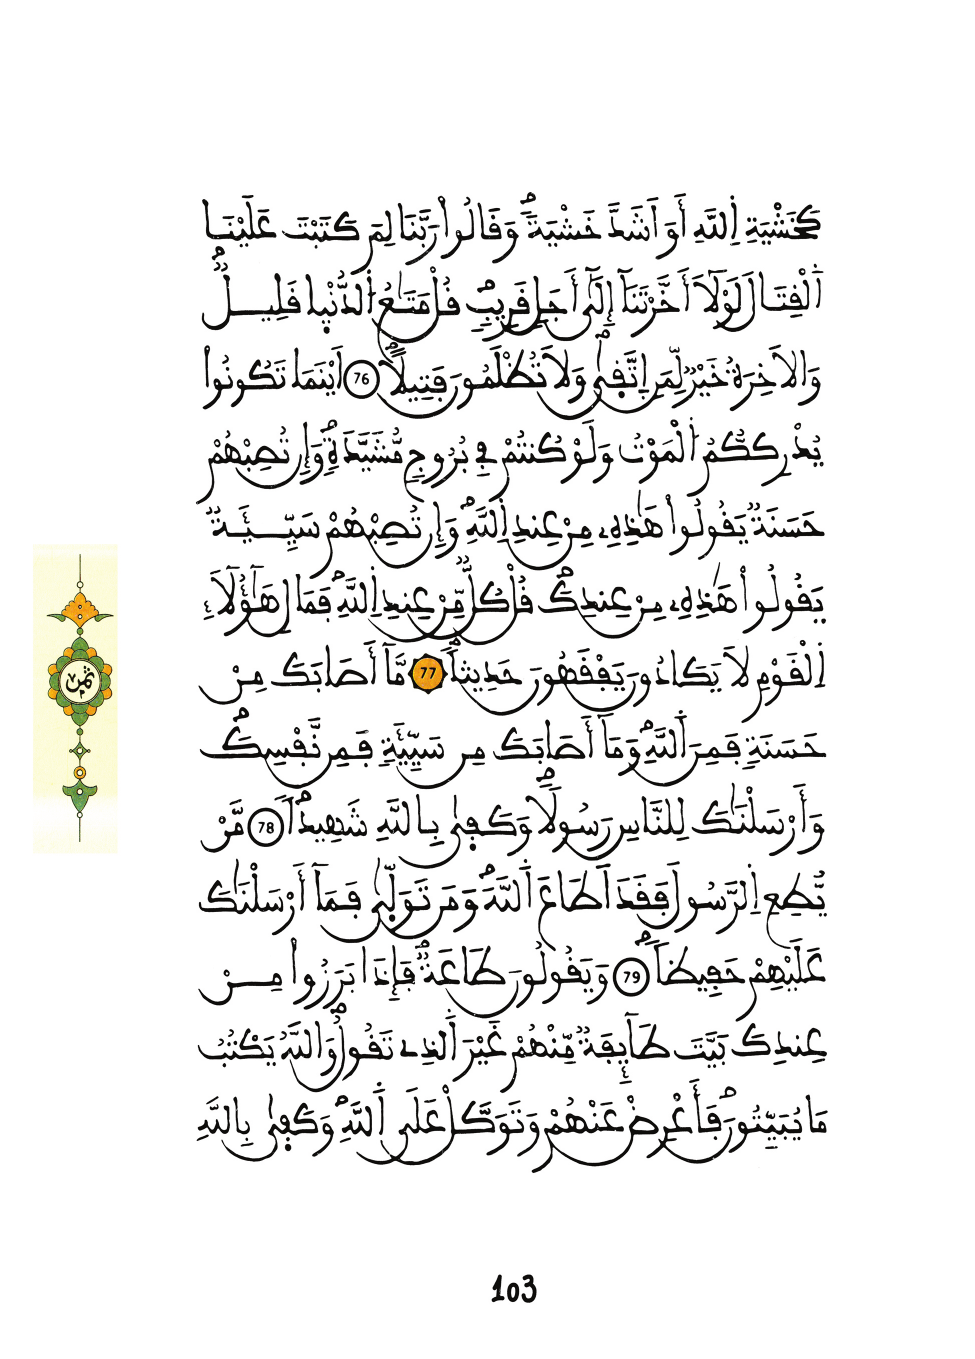 كَخَشْيَةِ اِ۬للَّهِ أَوَ اَشَدَّ خَشْيَةٗۖ وَقَالُواْ رَبَّنَا لِمَ كَتَبْتَ عَلَيْنَا
اَ۬لْقِتَالَ لَوْلَآ أَخَّرْتَنَآ إِلَيٰٓ أَجَلٖ قَرِيبٖۖ قُلْ مَتَٰعُ اُ۬لدُّنْيٰا قَلِيلٞۖ
وَالَاخِرَةُ خَيْرٞ لِّمَنِ اِ۪تَّق۪يٰۖ وَلَا تُظْلَمُونَ فَتِيلاًۖ 76 اَيْنَمَا تَكُونُواْ
يُدْرِككُّمُ اُ۬لْمَوْتُ وَلَوْ كُنتُمْ فِے بُرُوجٖ مُّشَيَّدَةٖۖ وَإِن تُصِبْهُمْ
حَسَنَةٞ يَقُولُواْ هَٰذِهِۦ مِنْ عِندِ اِ۬للَّهِۖ وَإِن تُصِبْهُمْ سَيِّئَةٞ
يَقُولُواْ هَٰذِهِۦ مِنْ عِندِكَۖ قُلْ كُلّٞ مِّنْ عِندِ اِ۬للَّهِۖ فَمَالِ هَٰٓؤُلَآءِ
اِ۬لْقَوْمِ لَا يَكَادُونَ يَفْقَهُونَ حَدِيثاٗۖ 77 مَّآ أَصَابَكَ مِنْ
حَسَنَةٖ فَمِنَ اَ۬للَّهِۖ وَمَآ أَصَابَكَ مِن سَيِّئَةٖ فَمِن نَّفْسِكَۖ
وَأَرْسَلْنَٰكَ لِلنَّاسِ رَسُولاٗۖ وَكَف۪يٰ بِاللَّهِ شَهِيداٗۖ 78 مَّنْ
يُّطِعِ اِ۬لرَّسُولَ فَقَدَ اَطَاعَ اَ۬للَّهَۖ وَمَن تَوَلّ۪يٰ فَمَآ أَرْسَلْنَٰكَ
عَلَيْهِمْ حَفِيظاٗۖ 79 وَيَقُولُونَ طَاعَةٞۖ فَإِذَا بَرَزُواْ مِنْ
عِندِكَ بَيَّتَ طَآئِفَةٞ مِّنْهُمْ غَيْرَ اَ۬لذِے تَقُولُۖ وَاللَّهُ يَكْتُبُ
مَا يُبَيِّتُونَۖ فَأَعْرِضْ عَنْهُمْ وَتَوَكَّلْ عَلَى اَ۬للَّهِۖ وَكَف۪يٰ بِاللَّهِ
ثمن
103